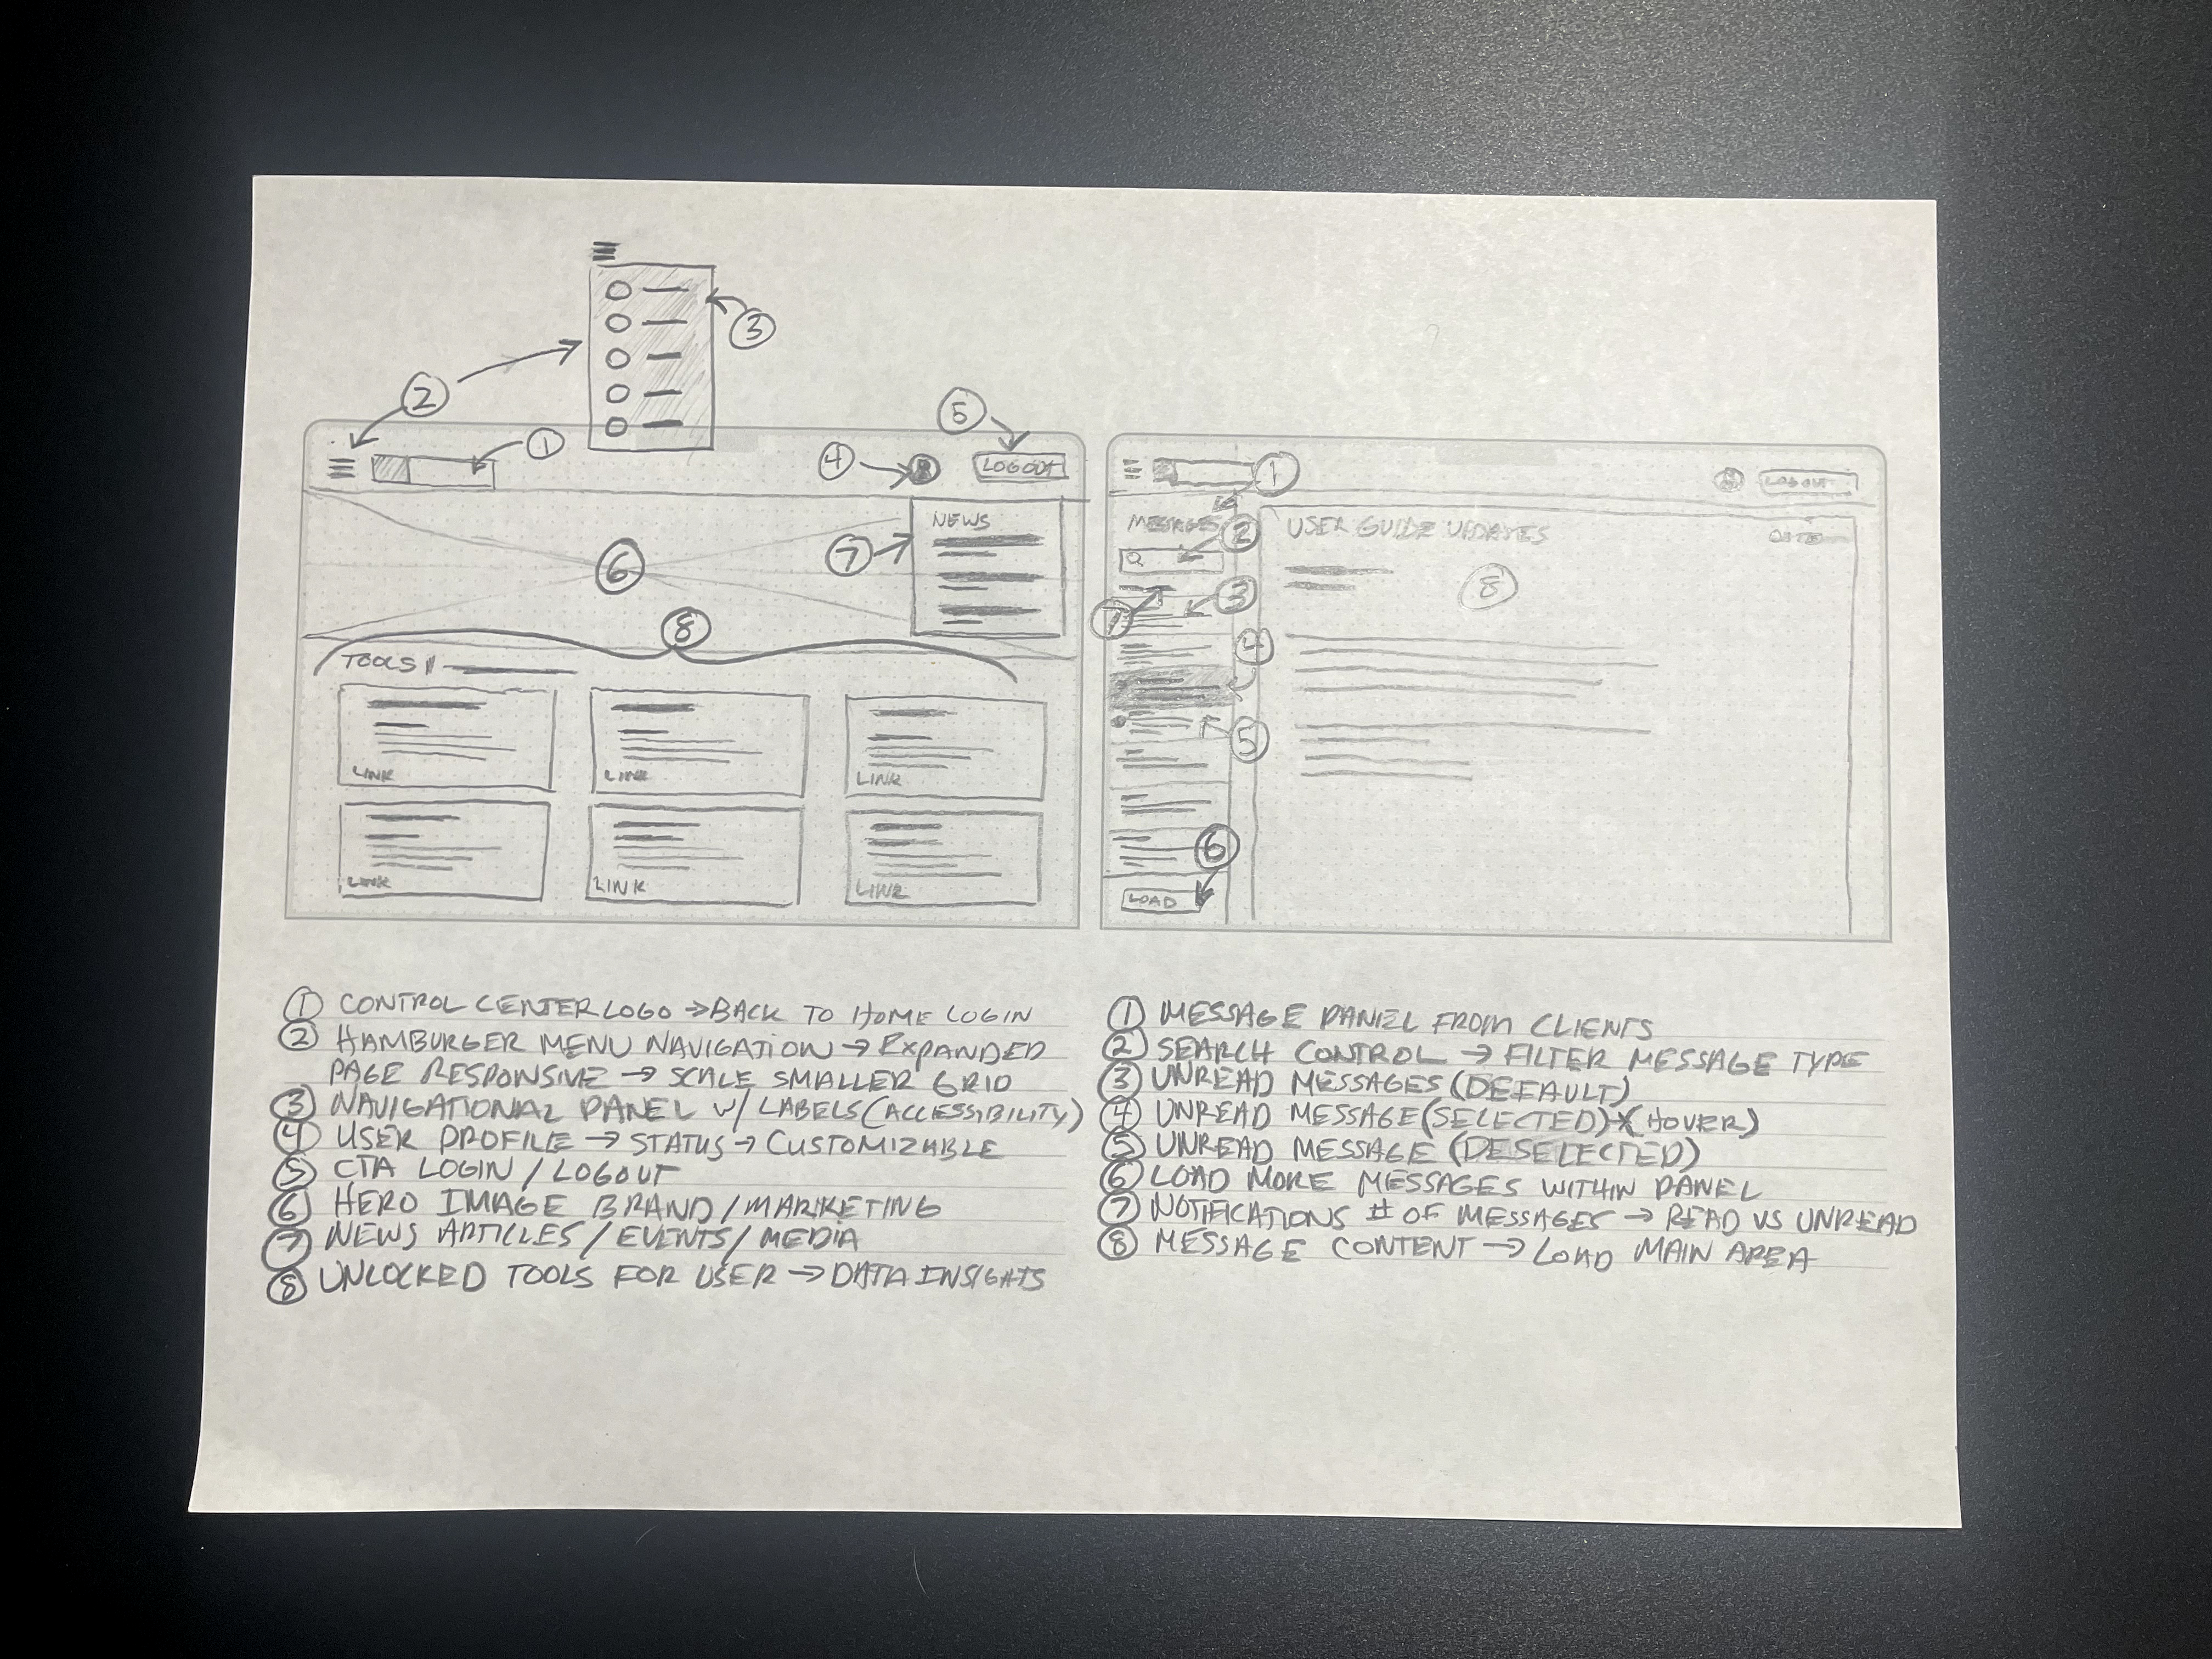 3
2
5
1
4
LOGOUT
NEWS
7
6
8
TOOLS
LINK
LINK
LINK
LINK
LINK
LINK
1
LOGOUT
MESSAGES
2
USER GUIDE UPDATES
DATE
3
7
8
4
5
6
LOAD
① CONTROL CENTER LOGO → BACK TO HOME LOGIN
② HAMBURGER MENU NAVIGATION → EXPANDED
PAGE RESPONSIVE → SCALE SMALLER GRID
③ NAVIGATIONAL PANEL W/ LABELS (ACCESSIBILITY)
④ USER PROFILE → STATUS → CUSTOMIZABLE
⑤ CTA LOGIN / LOGOUT
⑥ HERO IMAGE BRAND / MARKETING
⑦ NEWS ARTICLES / EVENTS / MEDIA
⑧ UNLOCKED TOOLS FOR USER → DATA INSIGHTS
① MESSAGE PANEL FROM CLIENTS
② SEARCH CONTROL → FILTER MESSAGE TYPE
③ UNREAD MESSAGES (DEFAULT)
④ UNREAD MESSAGE (SELECTED) (HOVER)
⑤ UNREAD MESSAGE (DESELECTED)
⑥ LOAD MORE MESSAGES WITHIN PANEL
⑦ NOTIFICATIONS # OF MESSAGES → READ VS UNREAD
⑧ MESSAGE CONTENT → LOAD MAIN AREA